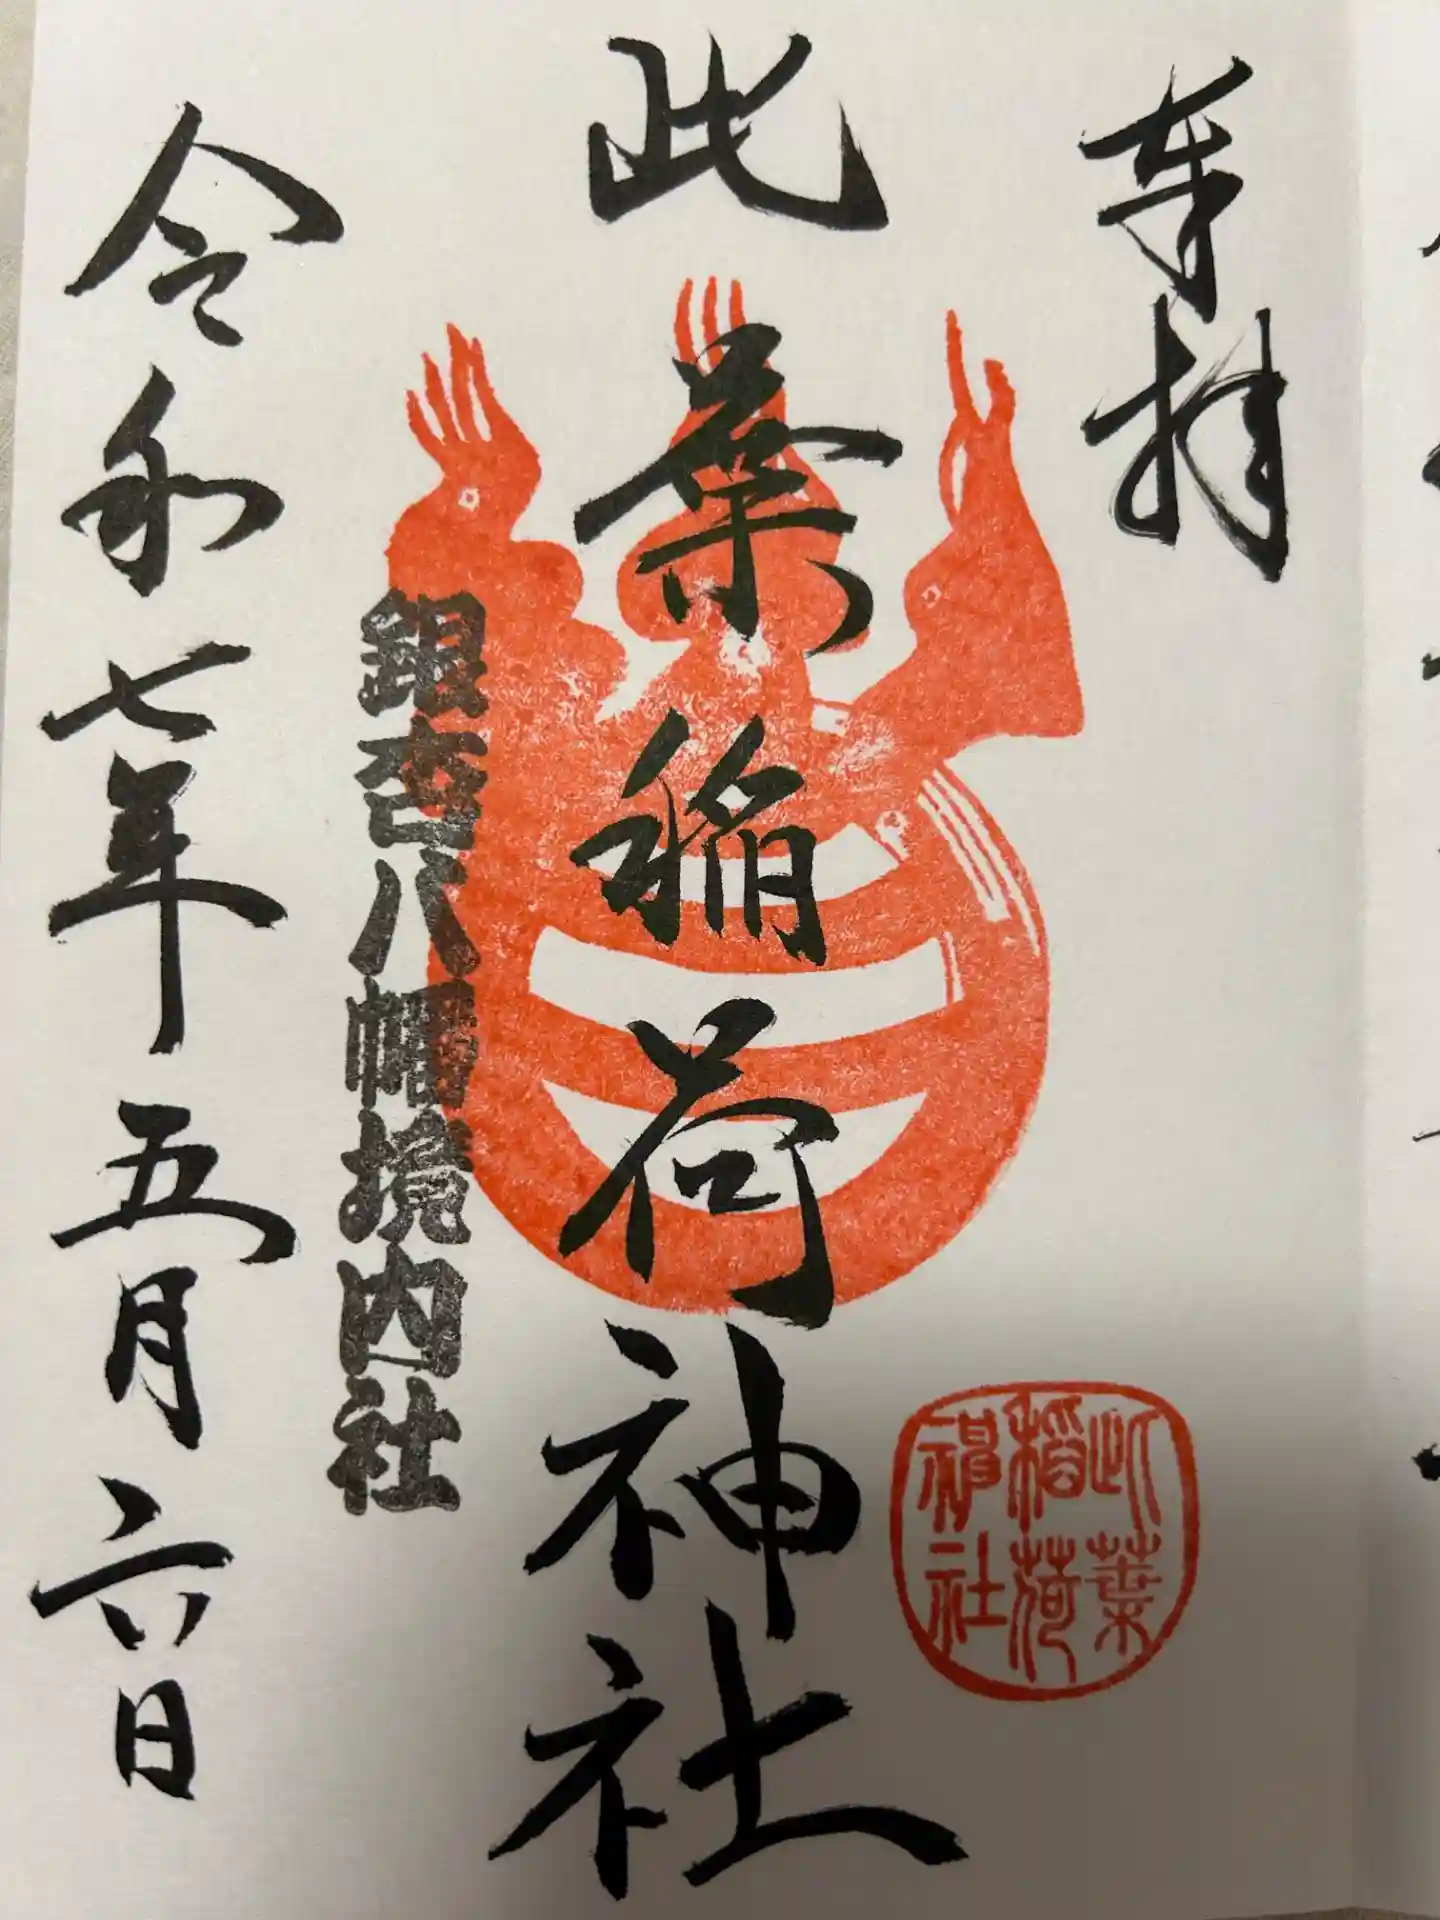 奉拝
此葉稲荷神社
此葉
稲荷
神社
銀杏八幡境内社
令和七年五月六日